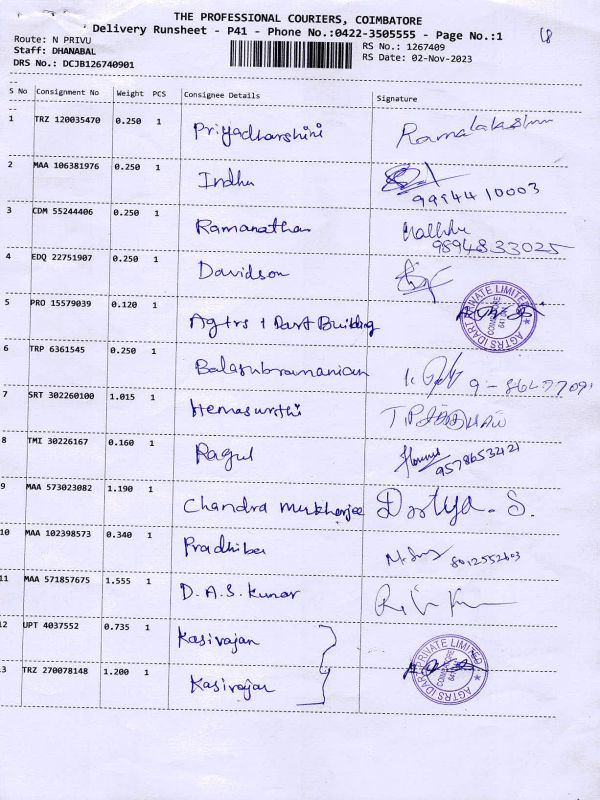 THE PROFESSIONAL COURIERS, COIMBATORE
Delivery Runsheet - P41 - Phone No.:0422-3505555 - Page No.:1
Route: N PRIVU RS No.: 1267409
Staff: DHANABAL RS Date: 02-Nov-2023
DRS No.: DCJB126740901
S No Consignment No Weight PCS Consignee Details Signature
1 TRZ 120035470 0.250 1 Priyadharshini Ramalakshmi
2 MAA 106381976 0.250 1 Indhu
9944410003
3 CDM 55244406 0.250 1 Ramanathan
9894833025
4 EDQ 22751907 0.250 1 Davidson
5 PRO 15579039 0.120 1 Agtrs 1 Dart Building
AGTRS IDART PRIVATE LIMITED
COIMBATORE
6 TRP 6361545 0.250 1 Balasubramanian
7 SRT 302260100 1.015 1 Hemasurthi
8 TMI 30226167 0.160 1 Ragul
95786532121
9 MAA 573023082 1.190 1 Chandra Mukherjee
10 MAA 102398573 0.340 1 Pradhiba
8012552603
11 MAA 571857675 1.555 1 D.A.S. kumar
12 UPT 4037552 0.735 1 Kasirajan
13 TRZ 270078148 1.200 1 Kasirajan
AGTRS IDART PRIVATE LIMITED
COIMBATORE